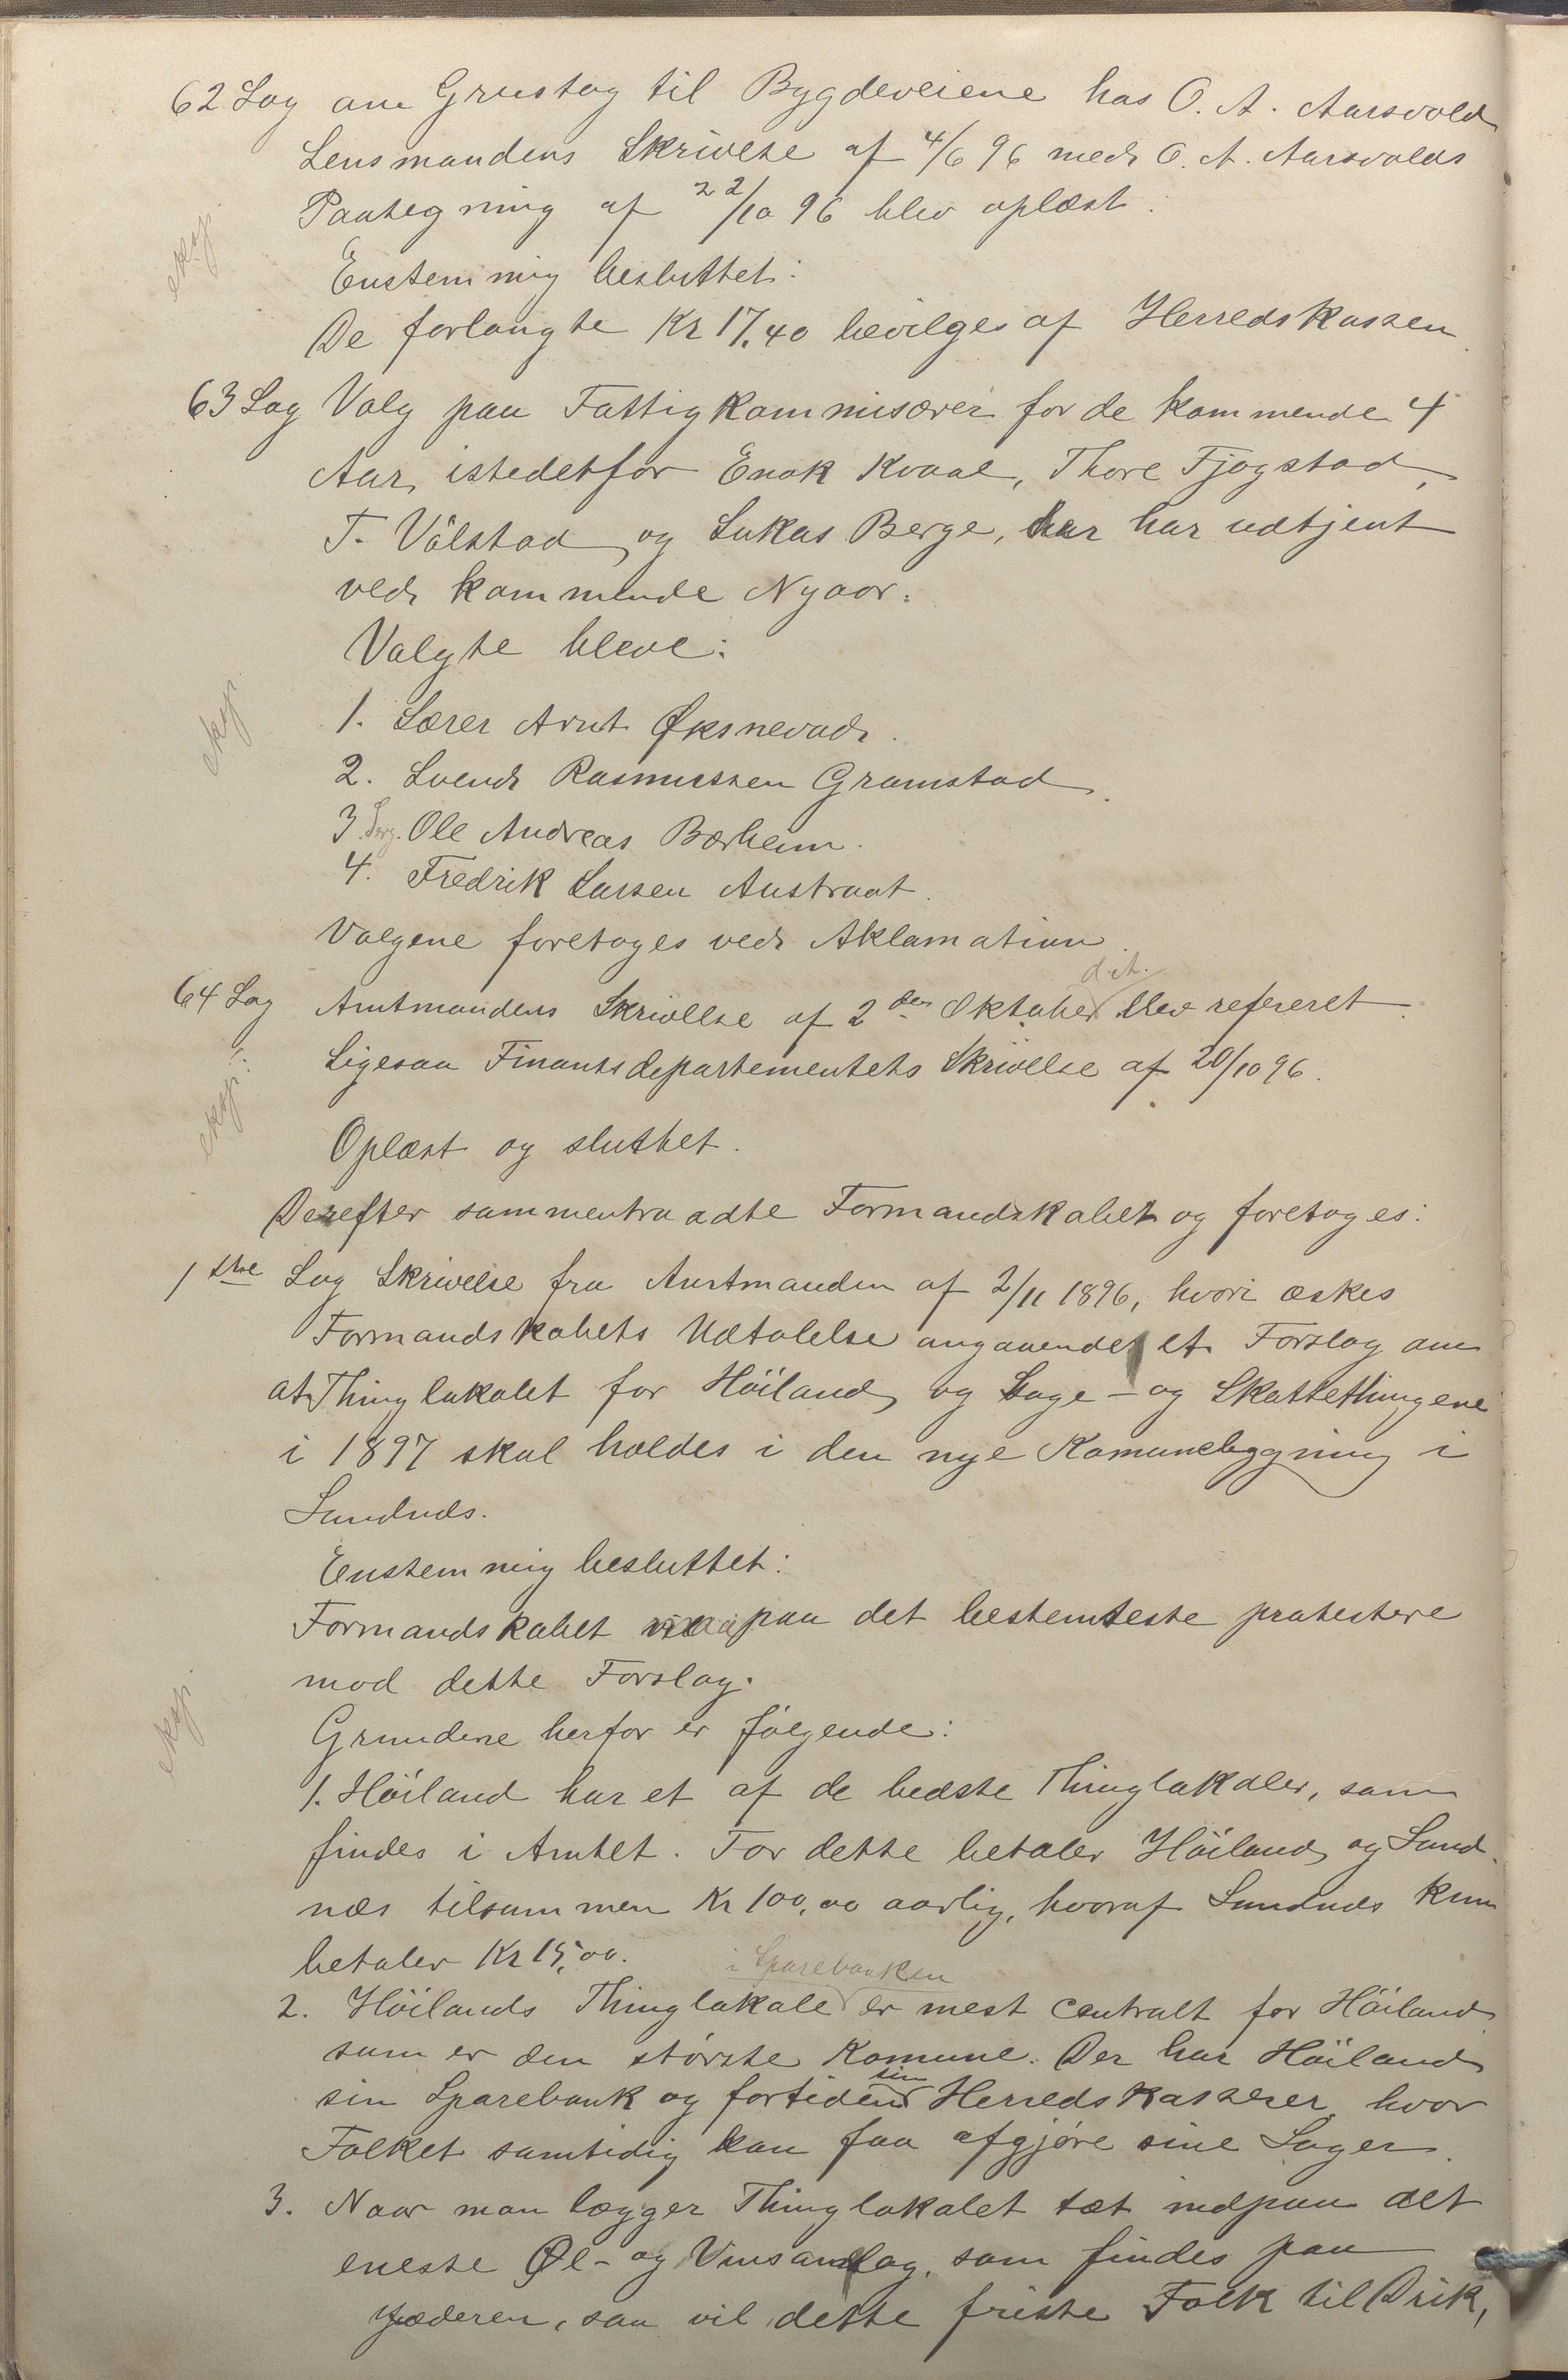 62 Sag om Grustag til Bygdeveiene hos O. A. Aarsvold
Lensmandens Skrivelse af 4/6 96 med O. A. Aarsvolds
Paategning af 22/10 96 blev oplæst.
eksp.
Enstemmig besluttet:
De forlangte Kr 17.40 bevilges af Herredskassen.
63 Sag Valg paa Fattigkommisærer for de kommende 4
Aar, istedetfor Enok Kvaal, Thore Fjogstad,
T. Völstad og Lukas Berge, der har udtjent
ved kommende Nyaar.
Valgte bleve:
eksp.
1. Lærer Arnt Øksnevad.
2. Svend Rasmussen Gramstad.
3. Serg. Ole Andreas Bærheim.
4. Fredrik Larsen Austraat.
Valgene foretoges ved Aklamation.
d. A.
64 Sag Amtmandens Skrivelse af 2den Oktober blev refereret.
Ligesaa Finantsdepartementets Skrivelse af 20/10 96.
eksp.
Oplæst og sluttet.
Derefter sammentraadte Formandskabet og foretoges:
1ste Sag Skrivelse fra Amtmanden af 2/11 1896, hvori æskes
Formandskabets Udtalelse angaaende et Forslag om
at Thinglokalet for Höiland og Sage- og Skattethingene
i 1897 skal holdes i den nye Komunebygning i
Sandnæs.
Enstemmig besluttet:
Formandskabet paa det bestemteste protestere
mod dette Forslag.
eksp.
Grundene herfor er fölgende:
1. Höiland har et af de bedste Thinglokaler, som
findes i Amtet. For dette betaler Höiland og Sand-
næs tilsammen Kr 100,00 aarlig, hvoraf Sandnæs kun
betaler Kr 15,00.
i Sparebanken
2. Höilands Thinglokale er mest centralt for Höiland
som er den störste Komune. Der har Höiland
sin
sin Sparebank og fortiden Herredskasserer hvor
Folket samtidig kan faa afgjöre sine Sager.
3. Naar man lægger Thinglokalet tæt indpaa det
eneste Øl- og Vinsamlag, som findes paa
Jæderen, saa vil dette friste Folk til Drik,